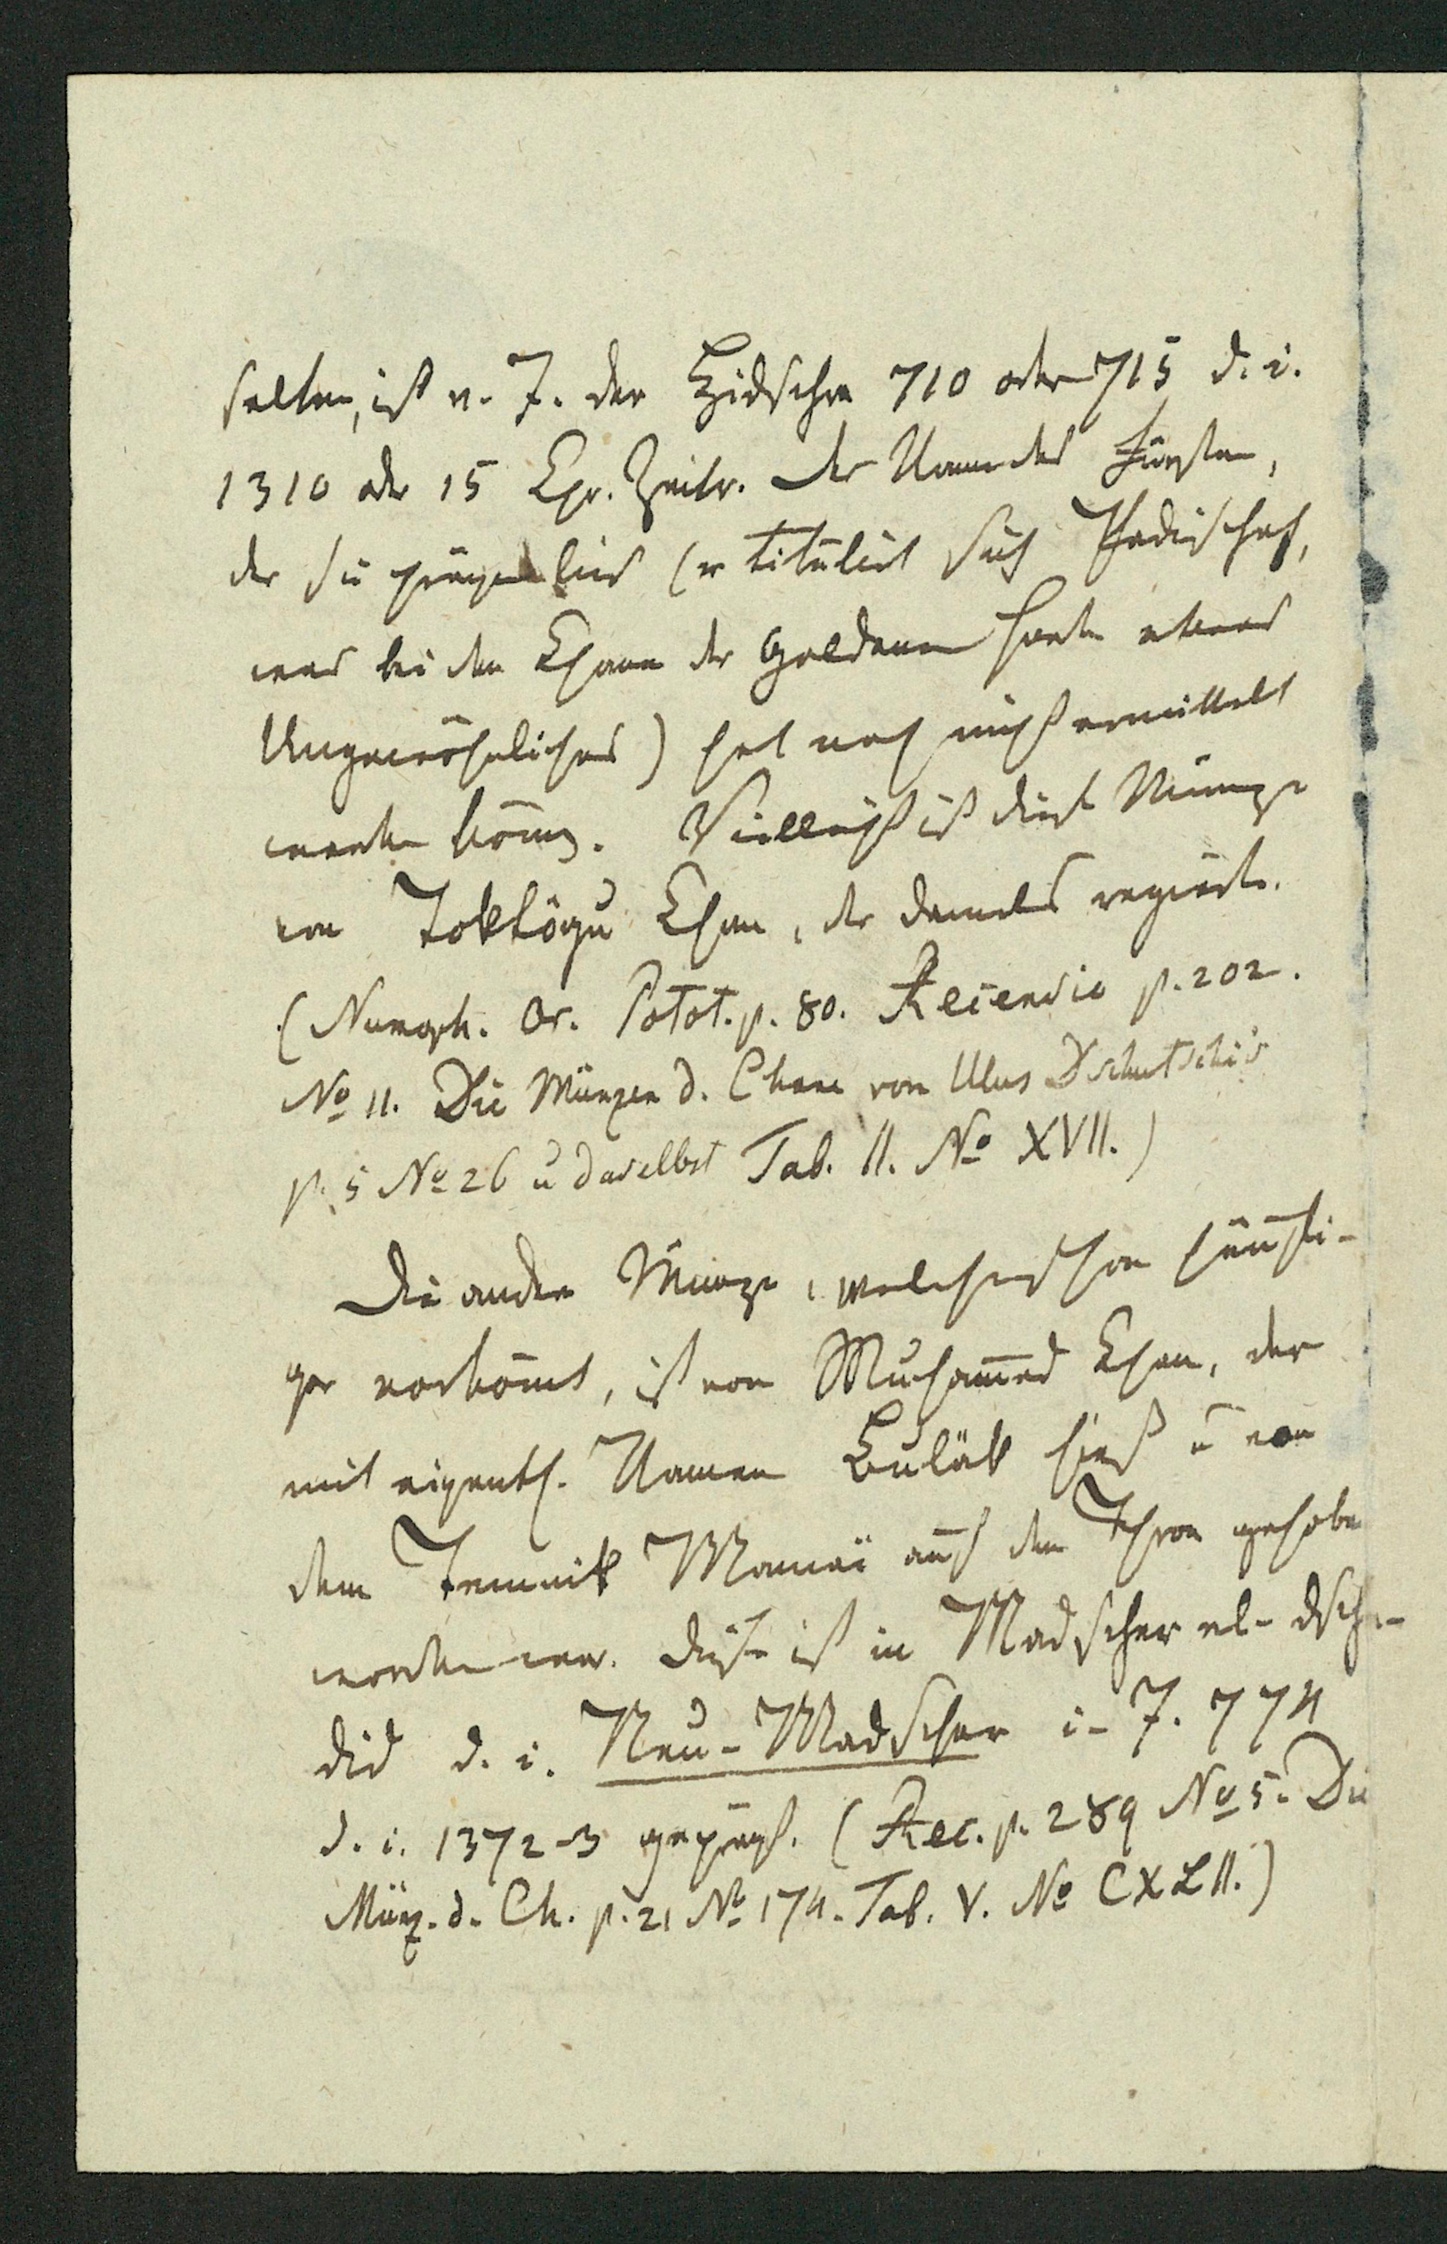 selten, ist v. J. der Hidschra 710 oder 715 d. i.
1310 oder 15 Chr. Zeitr. Der Name des Fürsten,
der sie prägen ließ (er titulirt sich Padischah,
was bei den Chanen der Goldenen Horde etwas
Ungewöhnliches) hat noch nicht ermittelt
werden können. Vielleicht ist diese Münze
von Toktögu Chan, der damals regierte.
(Numoph. Or. Potot. p. 80. Recensio p. 202.
No 11. Die Münzen d. Chane vom Ulus Dschutschi's
p. 5 No 26 u daselbst Tab. II. No XVII.)
Die andre Münze, welche schon häufi-
ger vorkömt, ist von Muham̄ed Chan, der
mit eigentl. Namen Buläk hieß u von
dem Temnik Mamai auf den Thron gehoben
worden war. Diese ist in Madschar el-dsche-
did d. i. Neu-Madschar i. J. 774
d. i. 1372-3 geprägt. (Rec. p. 289 No 5. Die
Münz. d. Ch. p. 21 No 174. Tab. V. No CXLII.)